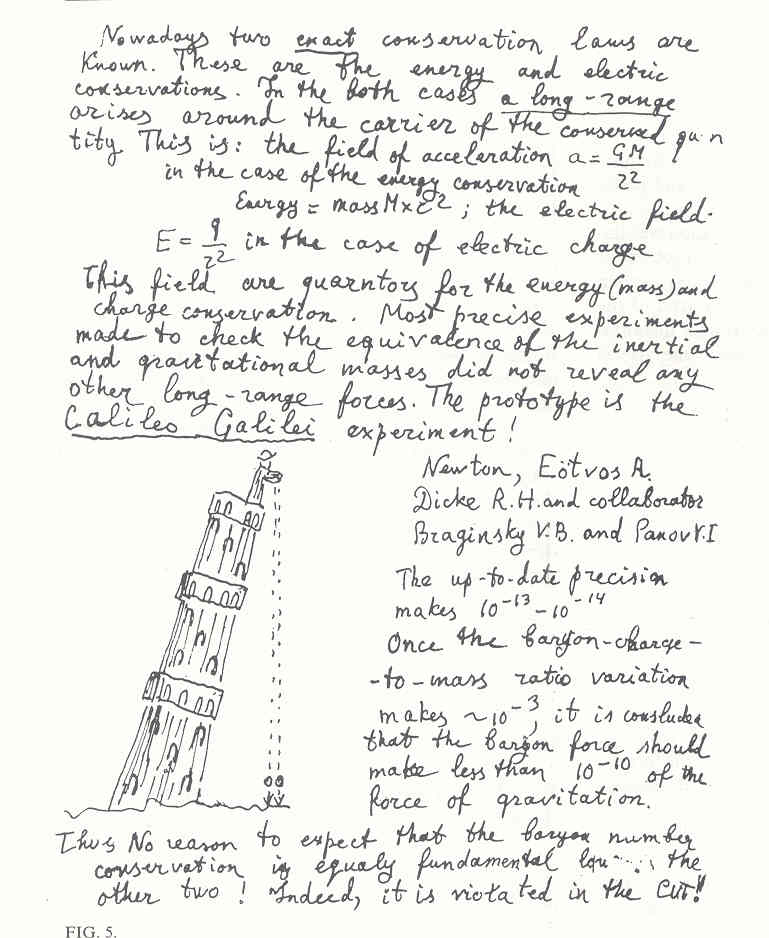 Nowadays two exact conservation laws are
Known. These are the energy and electric
conservations. In the both cases a long-range
arises around the carrier of the conserved quan
tity. This is: the field of acceleration a = GM/r²
in the case of the energy conservation
Energy = mass M×c²; the electric field.
E = q/r² in the case of electric charge
This field are quarntors for the energy (mass) and
charge conservation. Most precise experiments
made to check the equivalence of the inertial
and gravitational masses did not reveal any
other long-range forces. The prototype is the
Galileo Galilei experiment!
Newton, Eötvos A.
Dicke R.H. and collaborator
Braginsky V.B. and Panov V.I
The up-to-date precision
makes 10⁻¹³ – 10⁻¹⁴
Once the baryon-charge-
-to-mass ratio variation
makes ~10⁻³, it is consluded
that the baryon force should
make less than 10⁻¹⁰ of the
force of gravitation.
Thus No reason to expect that the baryon number
conservation is equaly fundamental the
other two! Indeed, it is violated in the GUT!!
FIG. 5.